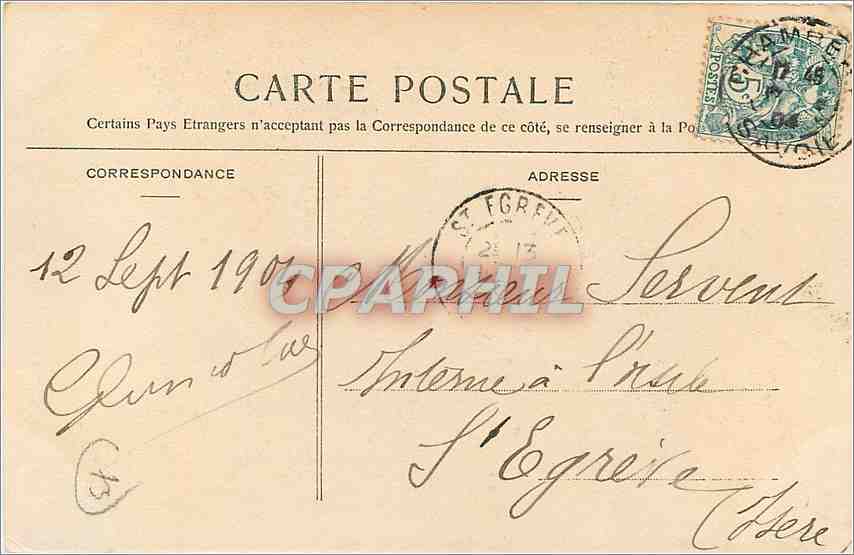 CARTE POSTALE
Certains Pays Etrangers n'acceptant pas la Correspondance de ce côté, se renseigner à la Po
5
POSTES
CHAMBERY
17 45
04
SAVOIE
CORRESPONDANCE
ADRESSE
ST EGREVE
13
12 Sept 1904
CPAPHIL
Monsieur Servent
Interne à l'asile
St Egrève
(Isère
13